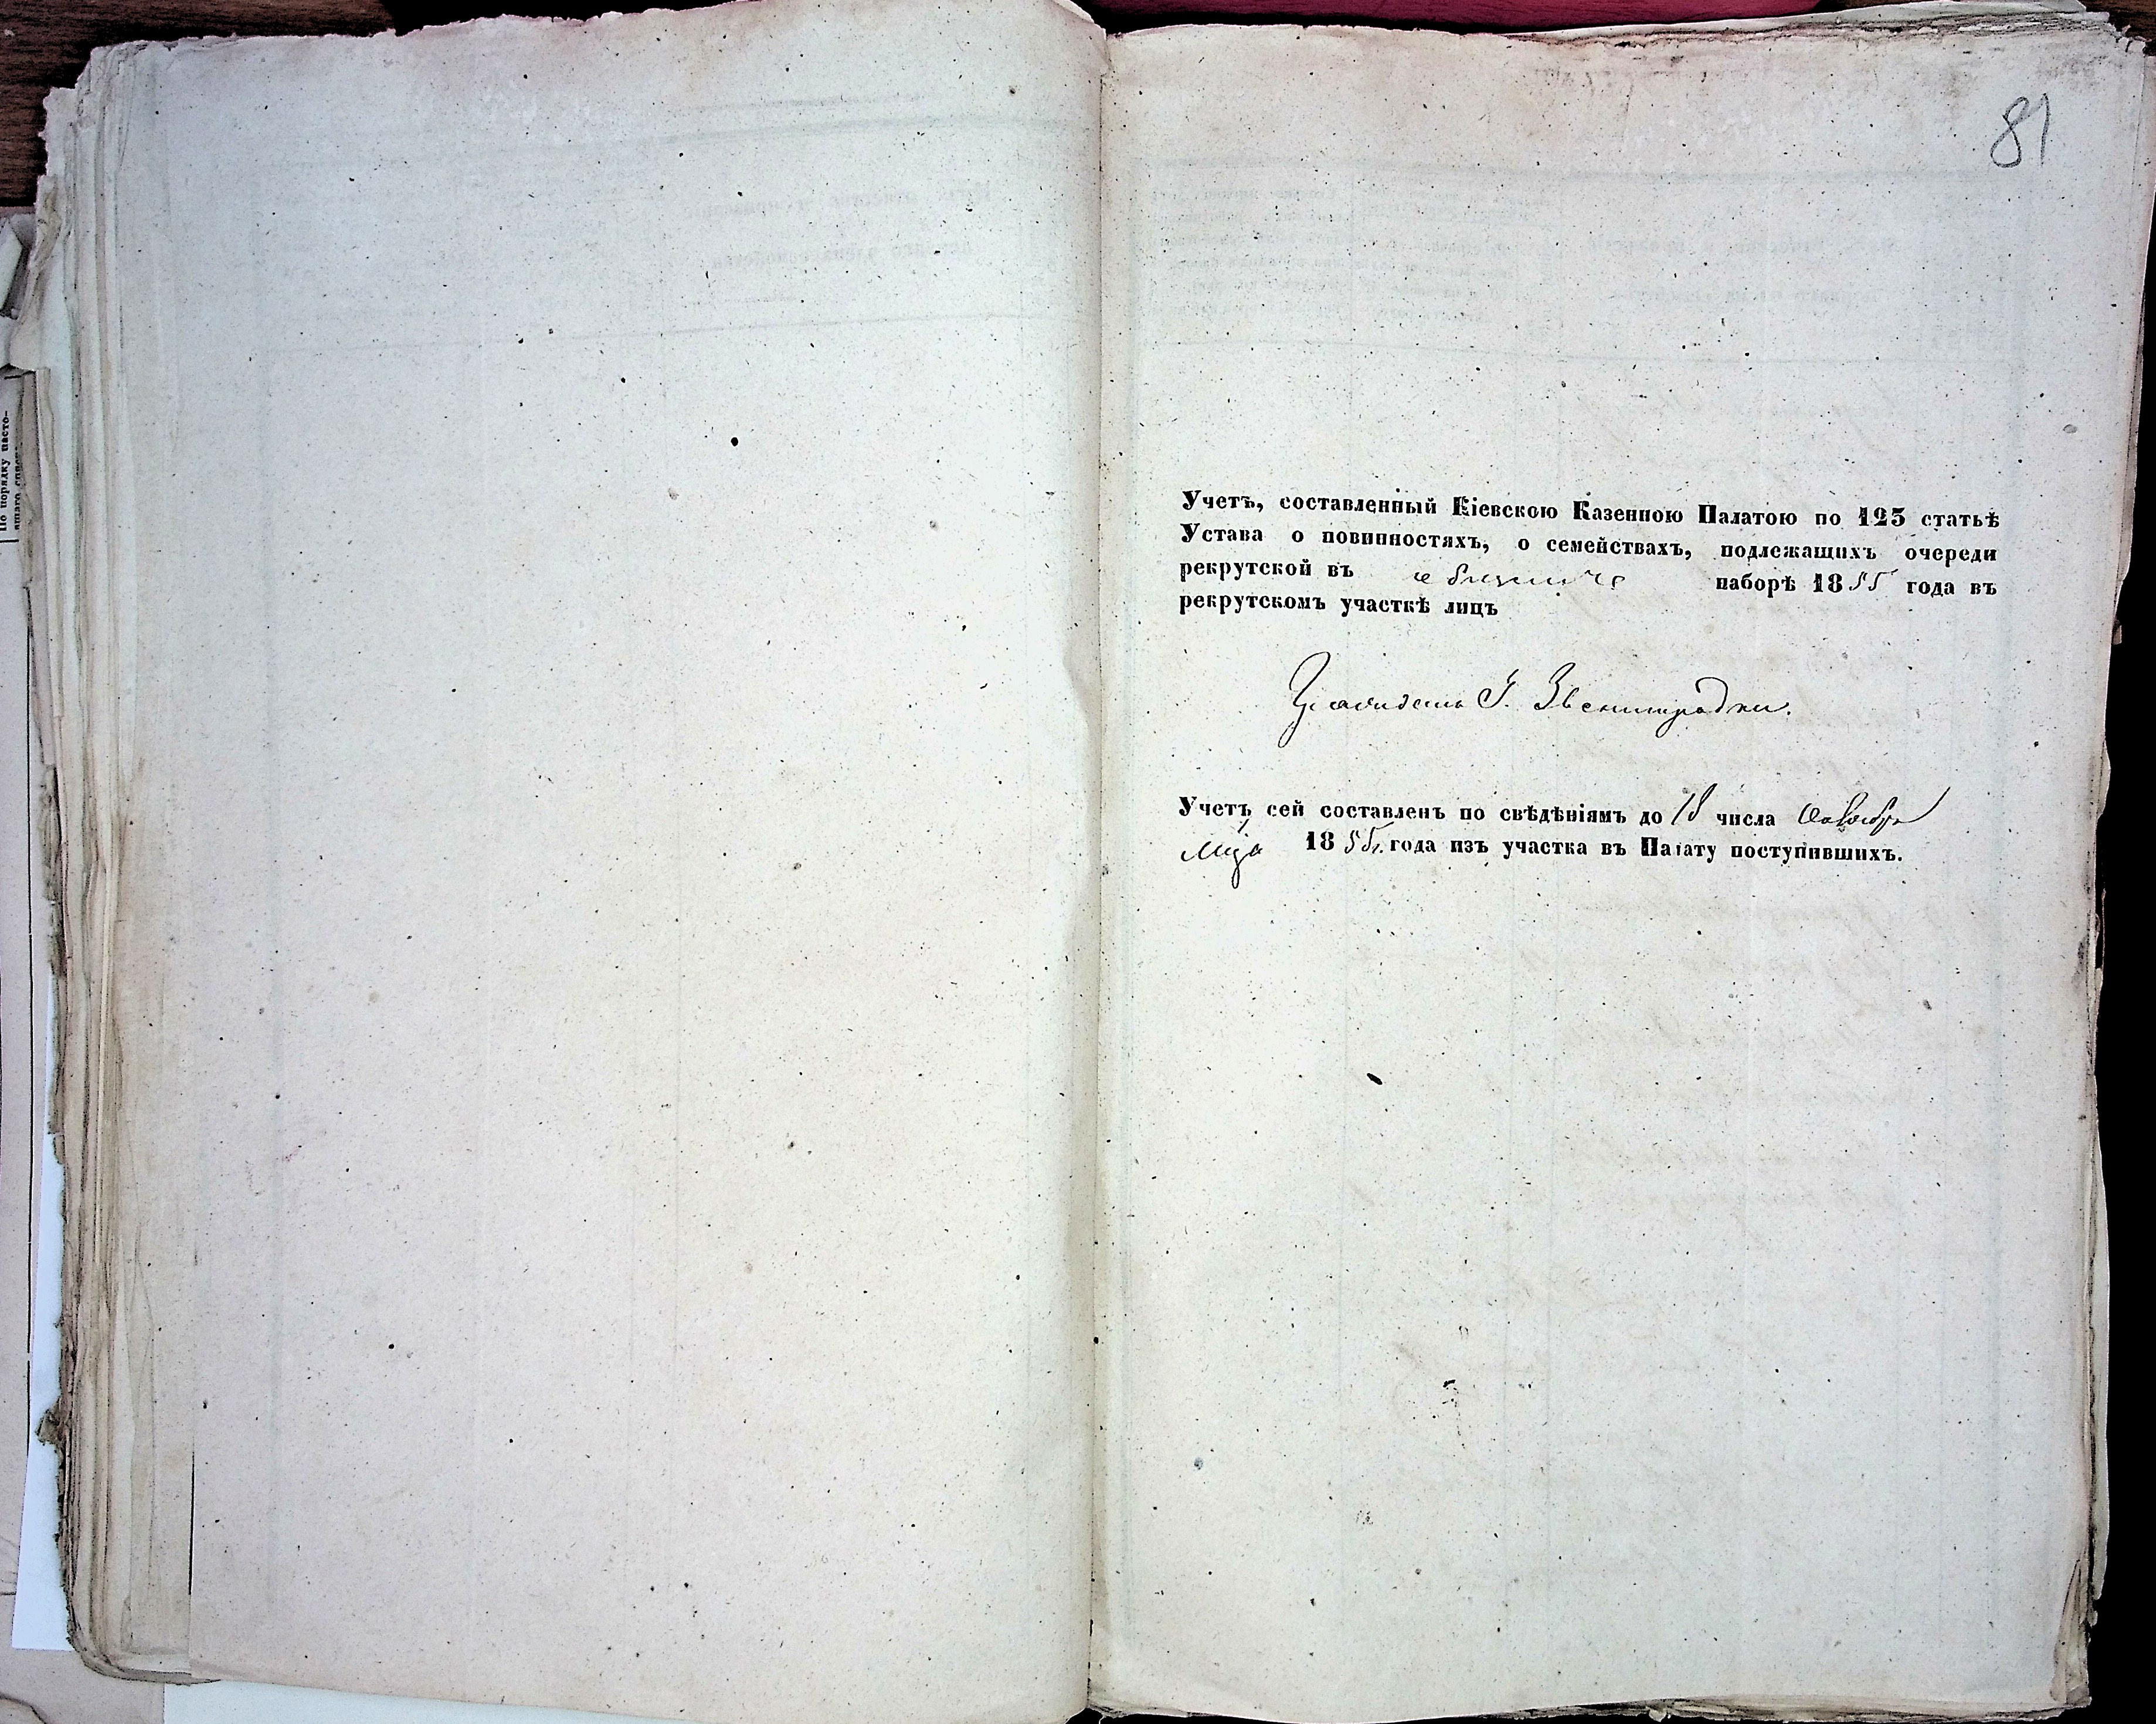 81
Учетъ, составленный Кіевскою Казенною Палатою по 125 статьѣ
Устава о повинностяхъ, о семействахъ, подлежащихъ очереди
рекрутской въ наборѣ 1855 года въ
рекрутскомъ участкѣ лицъ
Гражданъ Г. Звенигородки.
Учетъ сей составленъ по свѣдѣніямъ до 18 числа Октября
Мца 1855 г. года изъ участка въ Палату поступившихъ.
По порядку насто-